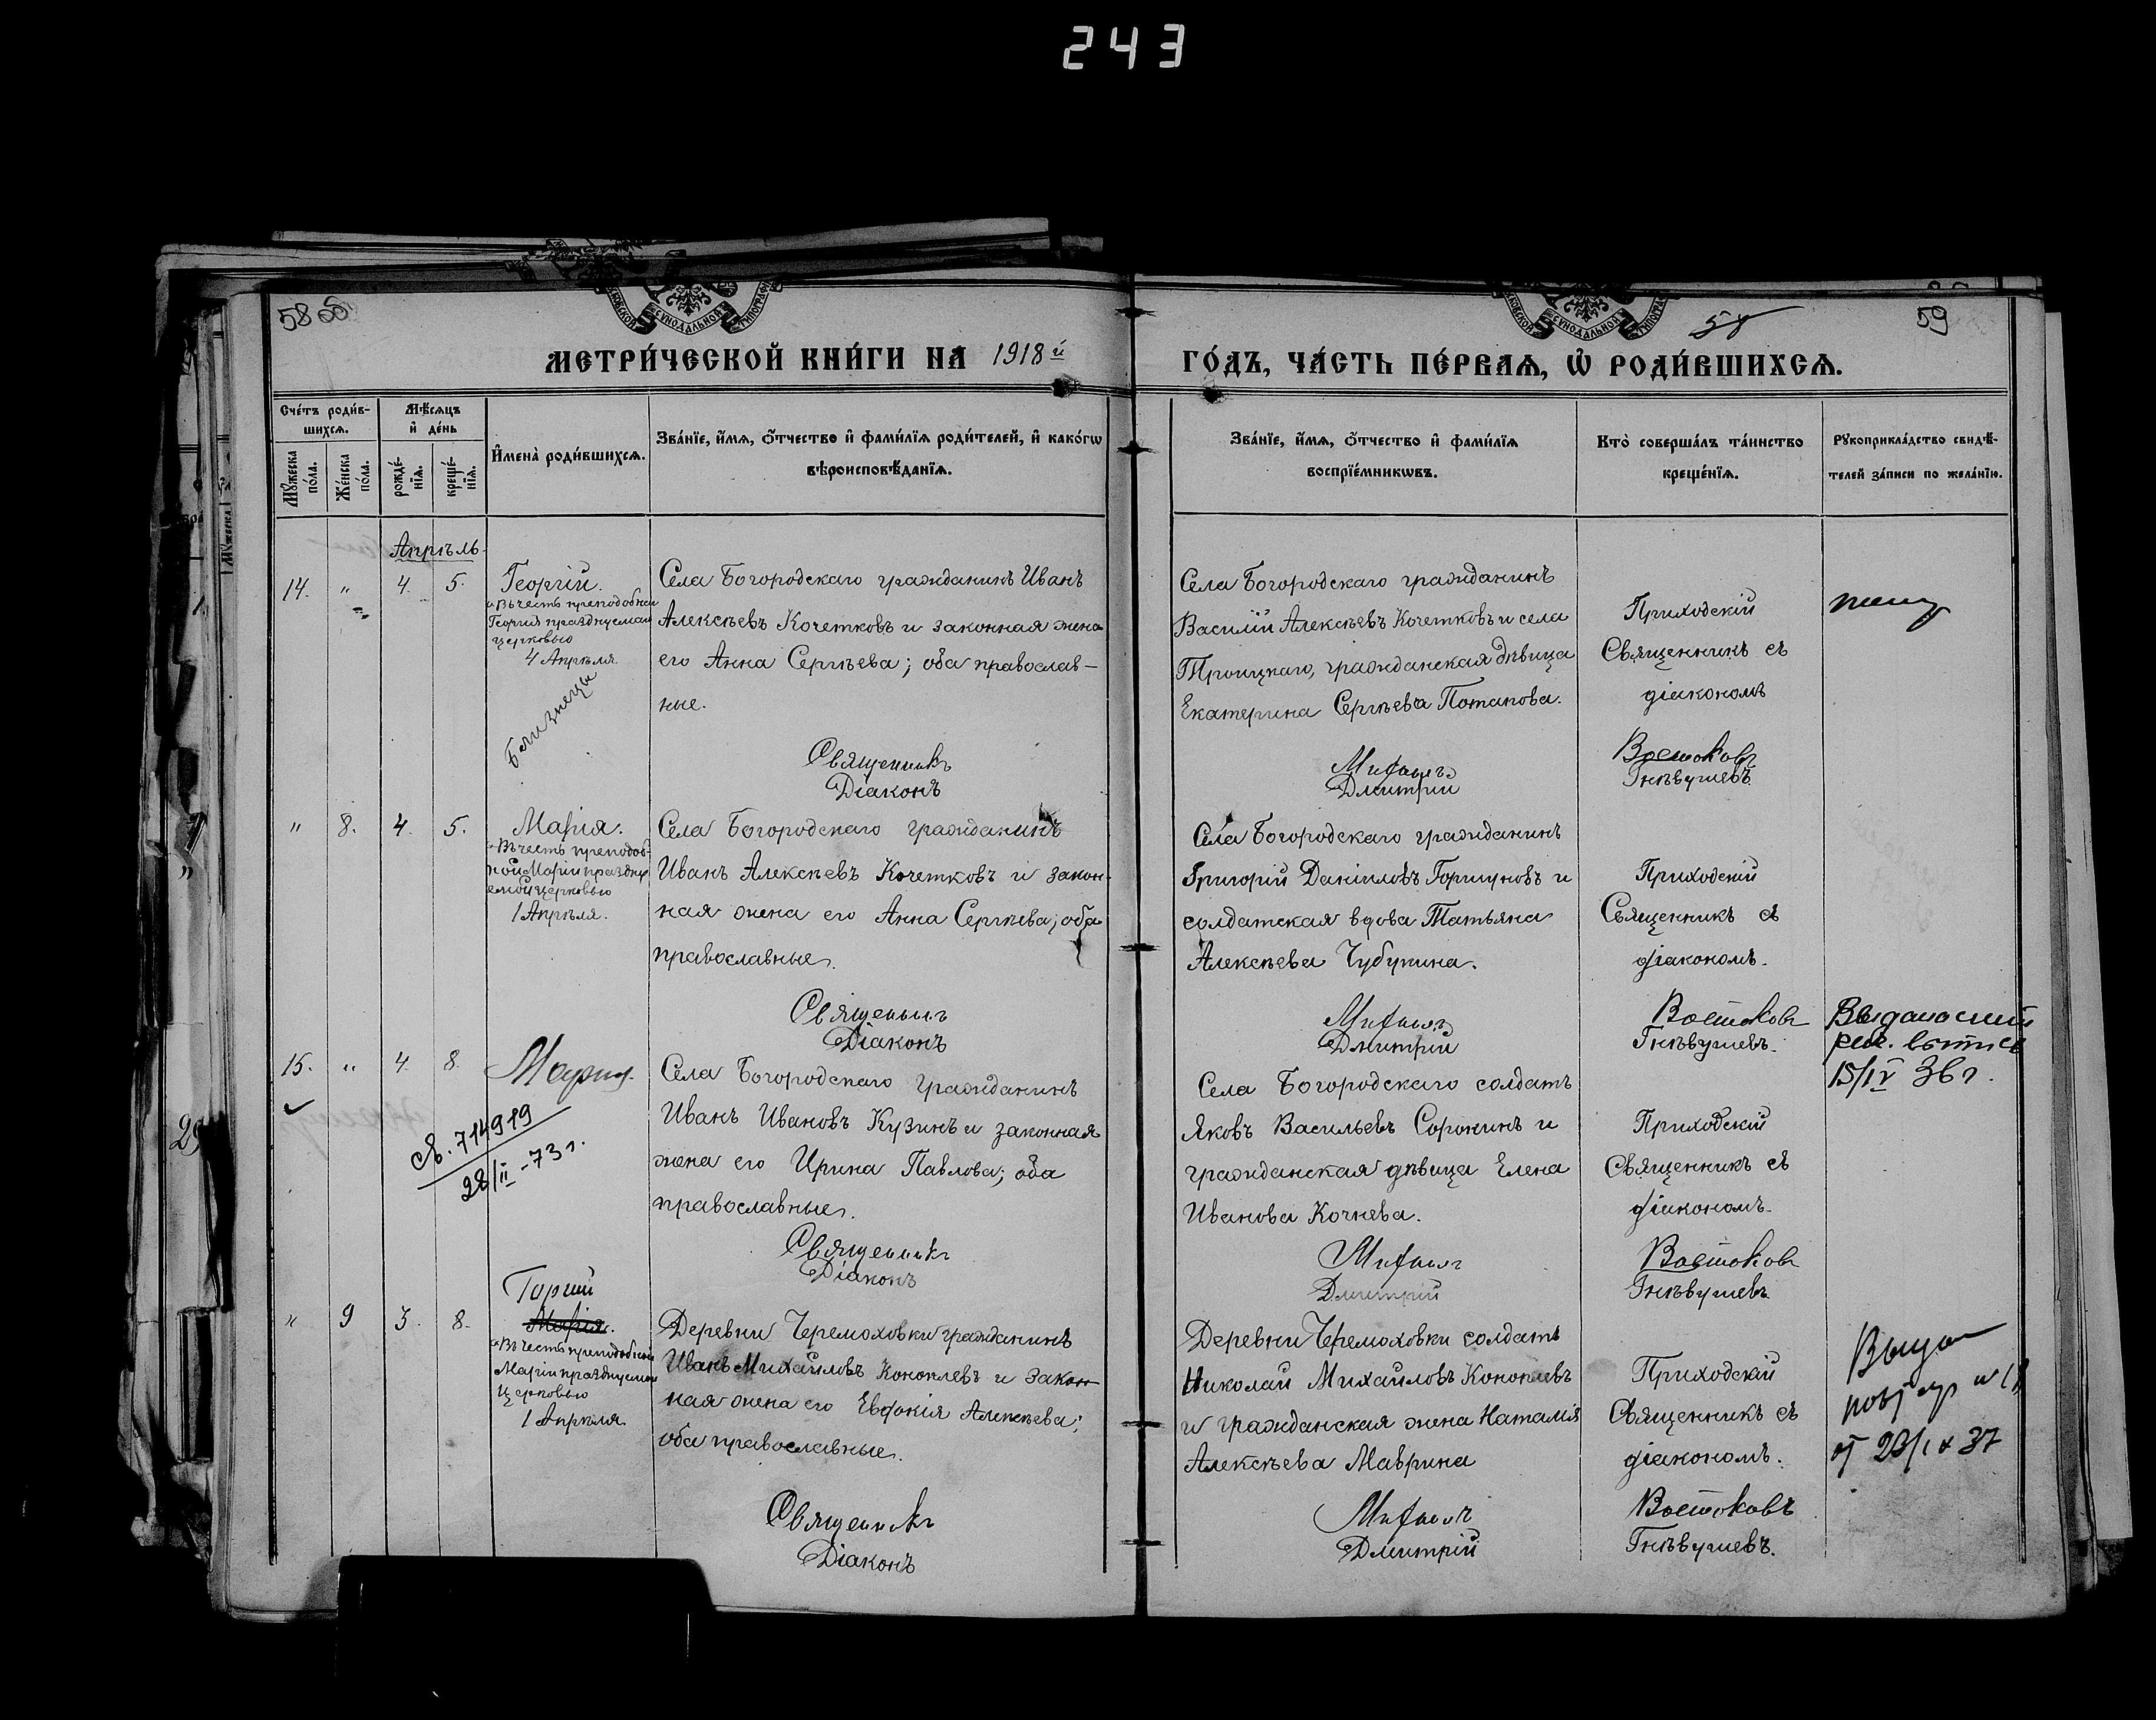 243
58 об
58
59
МЕТРИ́ЧЕСКОЙ КНИ́ГИ НА 1918 й
ГО́ДЪ, ЧА́СТЬ ПЕ́РВАѦ, Ѡ҆ РОДИ́ВШИХСѦ.
Сче́тъ роди́в-
шихсѧ.
Мѣ́сѧцъ
и҆ де́нь
Мꙋ́жеска по́ла.
Же́нска по́ла.
рожде́-
нїѧ.
креще́-
нїѧ.
И҆мена̀ роди́вшихсѧ.
Зва́нїе, и҆́мѧ, ѻ҆́тчество и҆ фами́лїѧ роди́телей, и҆ како́гѡ
вѣроисповѣ́данїѧ.
Зва́нїе, и҆́мѧ, ѻ҆́тчество и҆ фами́лїѧ
воспрїе́мникѡвъ.
Кто̀ соверша́лъ та́инство
креще́нїѧ.
Рꙋкоприкла́дство свидѣ́-
телей за́писи по жела́нїю.
Апрѣль
14. " 4. 5. Георгій.
Въ честь преподобнаго
Георгія празднуемаго
церковью
4 Апрѣля
Близнецы
Села Богородскаго гражданинъ Иванъ
Алексѣевъ Кочетковъ и законная жена
его Анна Сергѣева; оба православ-
ные.
Священникъ
Діаконъ
Села Богородскаго гражданинъ
Василій Алексѣевъ Кочетковъ и села
Троицкаго, гражданская дѣвица
Екатерина Сергѣева Потапова.
Михаилъ
Дмитрій
Приходскій
Священникъ съ
діакономъ
Востоковъ
Гнѣвушевъ
" 8. 4. 5. Марія.
Въ честь преподоб-
ной Маріи праздну
емой церковью
1 Апрѣля.
Села Богородскаго гражданинъ
Иванъ Алексѣевъ Кочетковъ и закон-
ная жена его Анна Сергѣева; оба
православные.
Священникъ
Діаконъ
Села Богородскаго гражданинъ
Григорій Даніиловъ Горшуновъ и
солдатская вдова Татьяна
Алексѣева Чубукина.
Михаилъ
Дмитрій
Приходскій
Священникъ съ
діакономъ.
Востоковъ
Гнѣвушевъ.
15/IV 36 г.
15. " 4. 8.
св. 714919
28/II-73 г.
Села Богородскаго гражданинъ
Иванъ Ивановъ Кузинъ и законная
жена его Ирина Павлова; оба
православные.
Священникъ
Діаконъ
Села Богородскаго солдатъ
Яковъ Васильевъ Сорокинъ и
гражданская дѣвица Елена
Иванова Кочнева.
Михаилъ
Дмитрій
Приходскій
Священникъ съ
діакономъ.
Востоковъ
Гнѣвушевъ
" 9 3. 8. Марія.
Въ честь преподобной
Маріи празднуемой
Церковью
1 Апрѣля.
Деревни Черемоховки гражданинъ
Иванъ Михаиловъ Коноплевъ и закон-
ная жена его Евдокія Алексѣева;
оба православные.
Священникъ
Діаконъ
Деревни Черемоховки солдатъ
Николай Михаиловъ Коноплевъ
и гражданская жена Наталія
Алексѣева Маврина
Михаилъ
Дмитрій
Приходскій
Священникъ съ
діакономъ.
Востоковъ
Гнѣвушевъ.